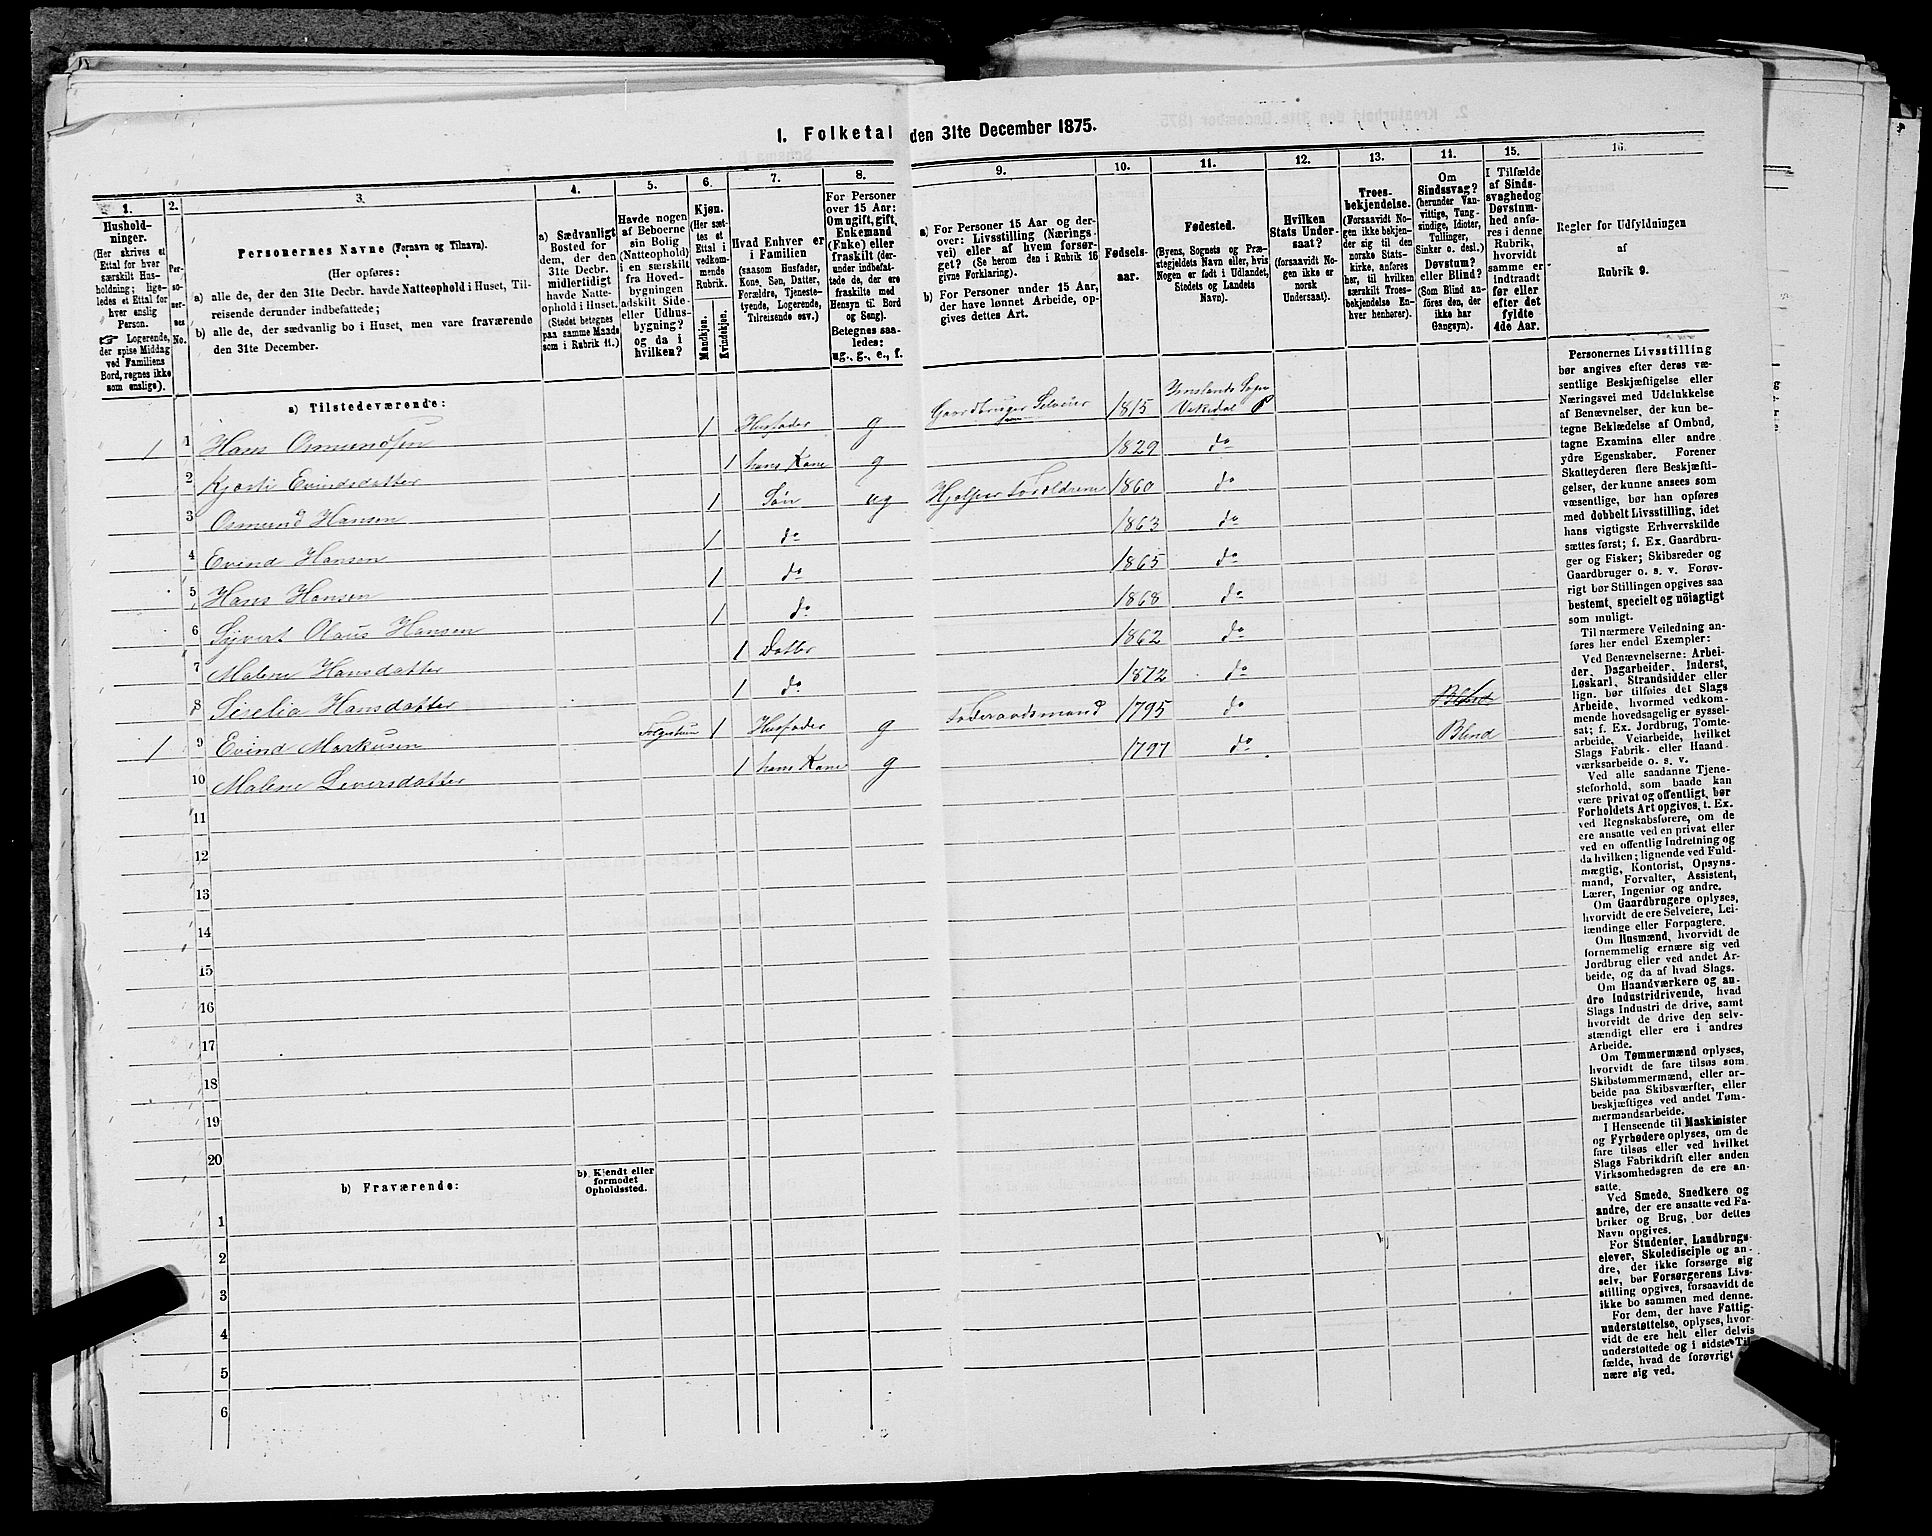 1. Folketal den 31te December 1875.
1.
Hushold-
ninger.
(Her skrives et
Ettal for hver
særskilt Hus-
holdning; lige-
ledes et Ettal for
hver enslig
Person.
☞ Logerende,
der spise Middag
ved Familiens
Bord, regnes ikke
som enslige).
2.
Per-
so-
ner-
nes
No.
3.
Personernes Navne (Fornavn og Tilnavn).
(Her opføres:
a) alle de, der den 31te Decbr. havde Natteophold i Huset, Til-
reisende derunder indbefattede;
b) alle de, der sædvanlig bo i Huset, men vare fraværende
den 31te December.
4.
a) Sædvanligt
Bosted for
dem, der den
31te Decbr.
midlertidigt
havde Natte-
ophold i Huset.
(Stedet betegnes
paa samme Maade
som i Rubrik 11.)
5.
Havde nogen
af Beboerne
sin Bolig
(Natteophold)
i en særskilt
fra Hoved-
bygningen
adskilt Side-
eller Udhus-
bygning?
og da i
hvilken?
6.
Kjøn.
(Her sæt-
tes et
Ettal i
vedkom-
mende
Rubrik.
Mandkjøn.
Kvindekjøn.
7.
Hvad Enhver er
i Familien
(saasom Husfader,
Kone, Søn, Datter,
Forældre, Tjeneste-
tyende, Logerende,
Tilreisende osv.)
8.
For Personer
over 15 Aar:
Om ugift, gift,
Enkemand
(Enke) eller
fraskilt (der-
under indbefat-
tede de, der ere
fraskilte med
Hensyn til Bord
og Seng).
Betegnes saa-
ledes:
ug., g., e., f.
9.
a) For Personer 15 Aar og der-
over: Livsstilling (Nærings-
vei) eller af hvem forsør-
get? (Se herom den i Rubrik 16
givne Forklaring).
b) For Personer under 15 Aar,
der have lønnet Arbeide, op-
gives dettes Art.
10.
Fødsels-
aar.
11.
Fødested.
(Byens, Sognets og Præ-
stegjeldets Navn eller, hvis
Nogen er født i Udlandet,
Stedets og Landets
Navn).
12.
Hvilken
Stats Under-
saat?
(forsaavidt No-
gen ikke er
norsk
Undersaat).
13.
Troes-
bekjendelse.
(Forsaavidt No-
gen ikke bekjen-
der sig til den
norske Stats-
kirke, anføres
her, til hvilken
særskilt Troes-
bekjendelse En-
hver henhører).
14.
Om
Sindssvag?
(herunder Van-
vittige, Tung-
sindige, Idioter,
Tullinger,
Sinker o. desl.)
Døvstum?
eller Blind?
(Som Blind an-
føres den, der
ikke har
Gangsyn).
15.
I Tilfælde
af Sinds-
svaghed og
Døvstum-
hed anfø-
res i denne
Rubrik,
hvorvidt
samme er
indtraadt
før eller
efter det
fyldte
4de Aar.
16.
Regler for Udfyldningen
af
Rubrik 9.
a) Tilstedeværende:
1 1 Hans Osmundsen 1 Husfader g Gaardbruger Selveier 1815 Imslands Sogn Vikedal P
2 Kjosti Evindsdatter 1 hans Kone g 1829 do
3 Osmund Hansen 1 Søn ug Hjelper Forældrene 1860 do
4 Evind Hansen 1 do 1863 do
5 Hans Hansen 1 do 1865 do
6 Sijvert Olaus Hansen 1 do 1868 do
7 Malene Hansdatter 1 Datter 1862 do
8 Siselia Hansdatter 1 do 1872 do
1 9 Evind Markusen 1 Husfader g Føderaadsmand 1795 do Blind
10 Malene Seversdatter 1 hans Kone g 1797 do Blind
11
12
13
14
15
16
17
18
19
20
b) Fraværende:
b) Kjendt eller
formodet
Opholdssted.
1
2
3
4
5
6
Personernes Livsstilling
bør angives efter deres væ-
sentlige Beskjæftigelse eller
Næringsvei med Udelukkelse
af Benævnelser, der kun be-
tegne Beklædelse af Ombud,
tagne Examina eller andre
ydre Egenskaber. Forener
Skatteyderen flere Beskjæfti-
gelser, der kunne ansees som
væsentlige, bør han opføres
med dobbelt Livsstilling, idet
hans vigtigste Erhvervskilde
sættes først; f. Ex. Gaardbru-
ger og Fisker; Skibsreder og
Gaardbruger o. s. v. Forøv-
rigt bør Stillingen opgives saa
bestemt, specielt og nöiagtigt
som muligt.
Til nærmere Veiledning an-
føres her endel Exempler:
Ved Benævnelserne: Arbei-
der, Dagarbeider, Inderst,
Løskarl, Strandsidder eller
lign. bør tilføies det Slags
Arbeide, hvormed vedkom-
mende hovedsagelig er syssel-
sat; f. Ex. Jordbrug, Tomte-
arbeide, Veiarbeide, hvilket
Slags Fabrik- eller Haand-
værksarbeide o. s. v.
Ved alle saadanne Tjene-
steforhold, som baade kan
være privat og offentligt, bør
Forholdets Art opgives, t. Ex.
ved Regnskabsførere, om de
ere ansatte ved en privat eller
ved en offentlig Indretning og
da hvilken; lignende ved Fuld-
mægtig, Kontorist, Opsyns-
mand, Forvalter, Assistent,
Lærer, Ingeniør og andre.
Om Gaardbrugere oplyses,
hvorvidt de ere Selveiere, Lei-
lændinge eller Forpagtere.
Om Husmænd, hvorvidt de
fornemmelig ernære sig ved
Jordbrug eller ved andet Ar-
beide, og da af hvad Slags.
Om Haandværkere og an-
dre Industridrivende, hvad
Slags Industri de drive, samt
hvorvidt de drive den selv-
stændigt eller ere i andres
Arbeide.
Om Tømmermænd oplyses,
hvorvidt de fare tilsøs som
Skibstømmermænd, eller ar-
beide paa Skibsværfter, eller
beskjæftiges ved andet Tøm-
mermandsarbeide.
I Henseende til Maskinister
og Fyrbødere oplyses, om de
fare tilsøs eller ved hvilket
Slags Fabrikdrift eller anden
Virksomhedsgren de ere an-
satte.
Ved Smede, Snedkere og
andre, der ere ansatte ved Fa-
briker og Brug, bør dettes
Navn opgives.
For Studenter, Landbrugs-
elever, Skoledisciple og an-
dre, der ikke forsørge sig
selv, bør Forsørgerens Livs-
stilling opgives, forsaavidt de
ikke bo sammen med denne.
For dem, der have Fattig-
understøttelse, oplyses, hvor-
vidt de ere helt eller delvis
understøttede og i sidste Til-
fælde, hvad de forøvrigt
nære sig ved.